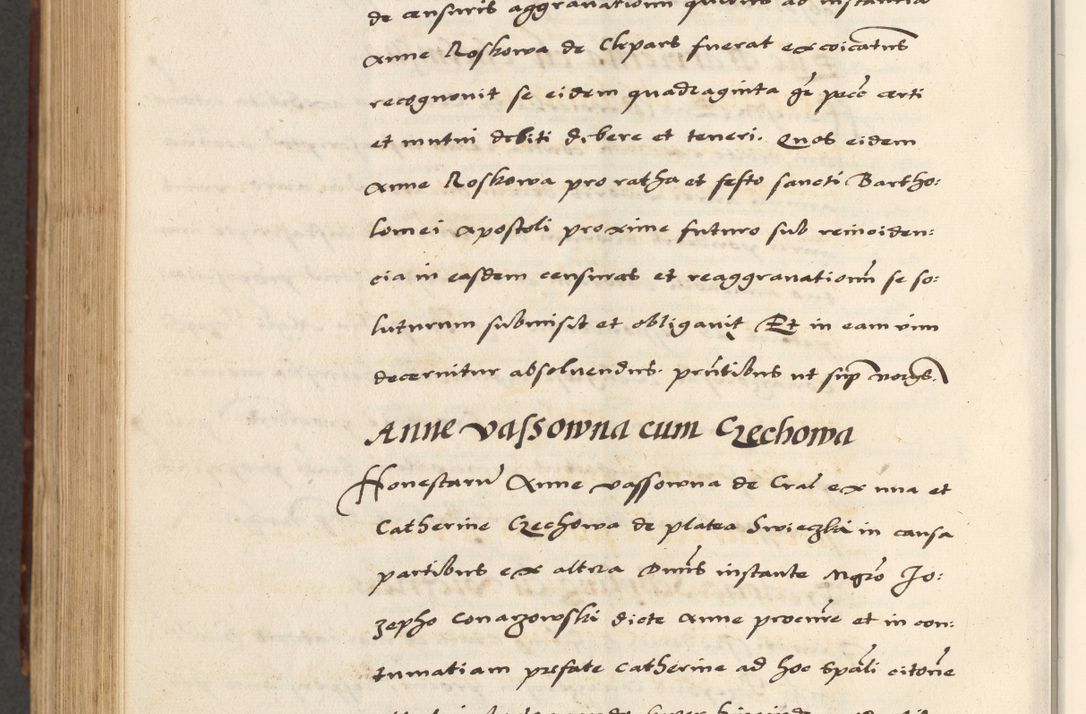 de censuris aggravationum quibus ad instantia
Anne Roskowa de Clepars fuerat excoicatus
recognovit se eidem quadraginta gr pecc certi
et mutui debiti debere et teneri. Quos eidem
Anne Roskowa pro ratha et festo sancti Bartho:
lomei Apostoli proxime futuro sub reinciden:
cia in easdem censuras et reaggravationum se so:
luturum submisit et obligavit Et in eam vim
decernitur absolvendus. pntibus ut sup
Anne Vassowna cum Czechowa
Honestarum Anne Vassowna de Crac ex una et
Catherine Czechowa de platea Swieczka in causa
partibus ex altera Dnus instante Mgro Jo:
zepho Conarzowski dicte Anne procure et in con:
tumatiam prefate Catherine ad hoc spali citone